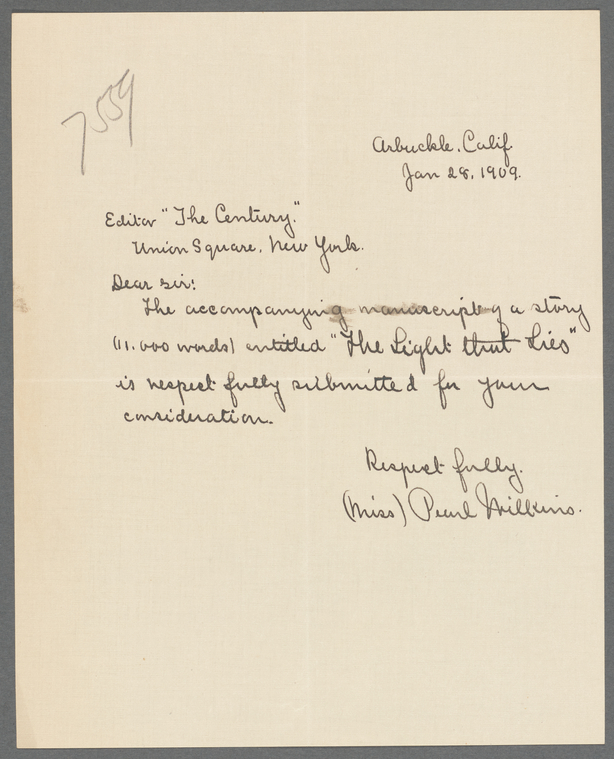 7559
Arbuckle, Calif.
Jan 28, 1909.
Editor "The Century."
Union Square, New York.
Dear sir:
The accompanying manuscript of a story
(11.000 words) entitled "The Light that Lies"
is respectfully submitted for your
consideration.
Respectfully.
(Miss) Pearl Wilkins.